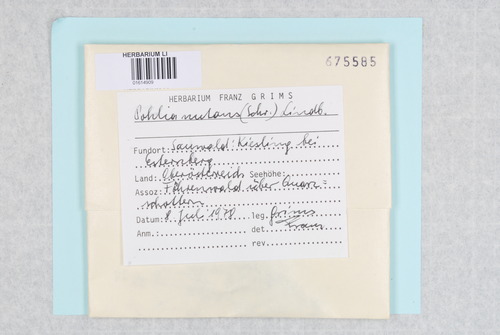 HERBARIUM LI
675585
HERBARIUM FRANZ GRIMS
Pohlia nutans (Schr.) Lindb.
Fundort: Sauwald: Kiesling bei
Esternberg
Land: Oberösterreich Seehöhe:
Assoz: Föhrenwald über Quarz=
schottern
Datum: 8. Juli 1978 leg. Grims
Anm.: det. Franz
rev.